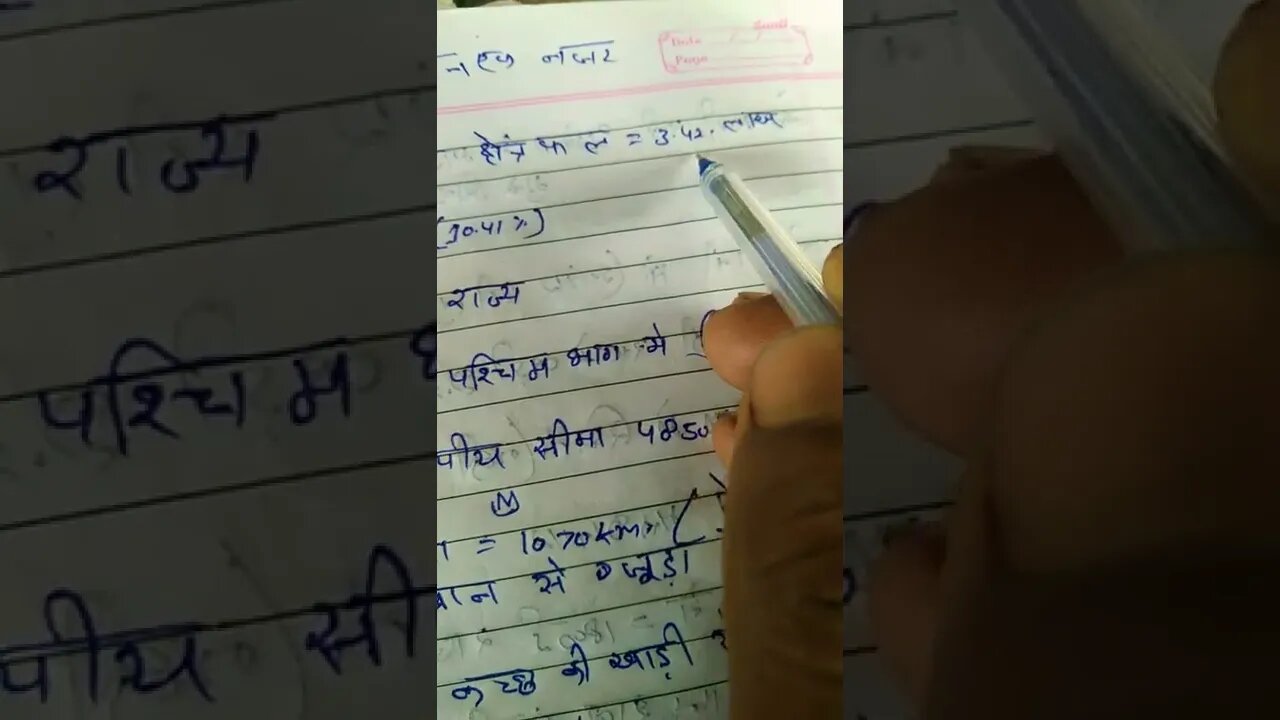 एक नजर
Date
Page
क्षेत्रफल = 3.42. लाख
(10.41%)
राज्य
पश्चिम भाग मे
पीय सीमा 4850
M
= 1070km (
से जूड़ा
कच्छ की खाड़ी